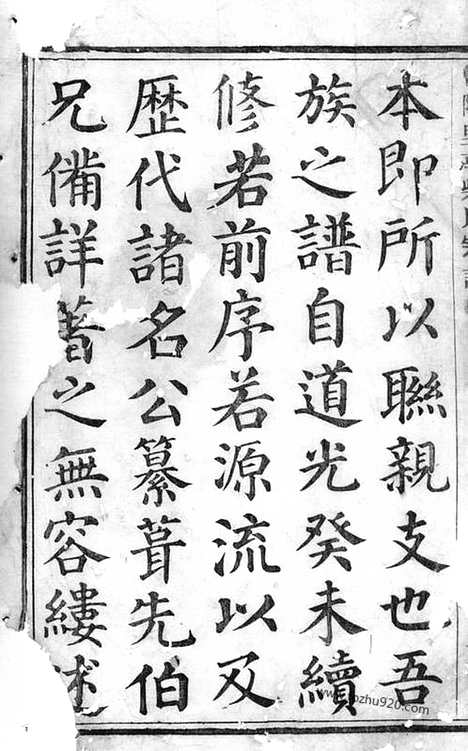 本即所以聯親支也吾
族之譜自道光癸未續
修若前序若源流以及
歷代諸名公纂葺先伯
兄備詳著之無容縷述